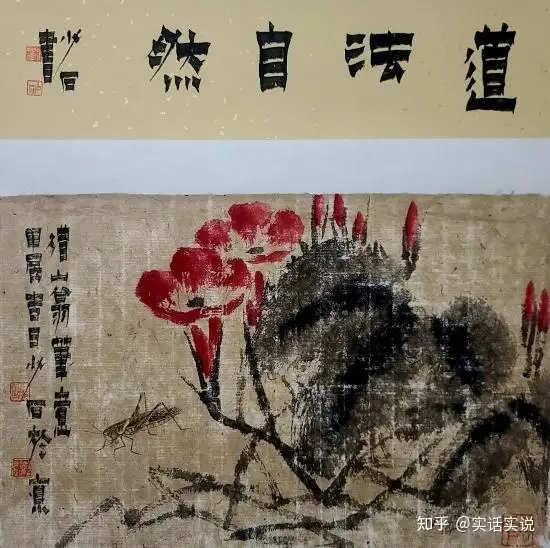 道法自然
少石
書
山翁筆意
甲辰春月少石於
知乎 @实话实说